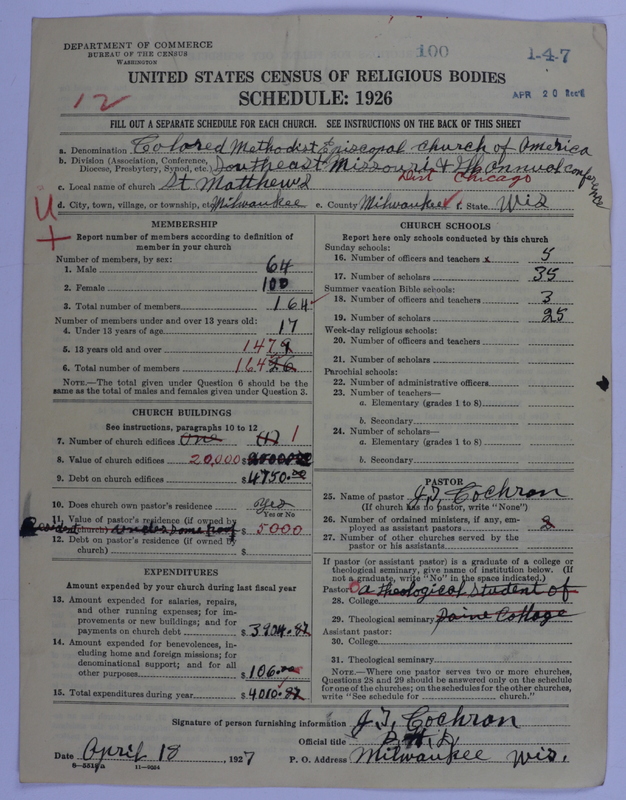 DEPARTMENT OF COMMERCE
BUREAU OF THE CENSUS
WASHINGTON
100
1-4-7
UNITED STATES CENSUS OF RELIGIOUS BODIES
SCHEDULE: 1926
12
APR 20
FILL OUT A SEPARATE SCHEDULE FOR EACH CHURCH. SEE INSTRUCTIONS ON THE BACK OF THIS SHEET
a. Denomination Colored Methodist Episcopal church of America
b. Division (Association, Conference, Diocese, Presbytery, Synod, etc.) Southeast Missouri & Ill Annual conference
Dist Chicago
c. Local name of church St Matthews
d. City, town, village, or township, etc. Milwaukee e. County Milwaukee f. State Wis
U
MEMBERSHIP
Report number of members according to definition of member in your church
Number of members, by sex:
1. Male 64
2. Female 100
3. Total number of members 164
Number of members under and over 13 years old:
4. Under 13 years of age 17
5. 13 years old and over 147
6. Total number of members 164
NOTE.—The total given under Question 6 should be the same as the total of males and females given under Question 3.
CHURCH BUILDINGS
See instructions, paragraphs 10 to 12
7. Number of church edifices One (1) 1
8. Value of church edifices 20,000 $
9. Debt on church edifices $4750.00
10. Does church own pastor's residence Yes
Yes or No
11. Value of pastor's residence (if owned by church) under same roof $ 5000
12. Debt on pastor's residence (if owned by church) $
EXPENDITURES
Amount expended by your church during last fiscal year
13. Amount expended for salaries, repairs, and other running expenses; for improvements or new buildings; and for payments on church debt $3904.87
14. Amount expended for benevolences, including home and foreign missions; for denominational support; and for all other purposes $106.00
15. Total expenditures during year $4010.87
CHURCH SCHOOLS
Report here only schools conducted by this church
Sunday schools:
16. Number of officers and teachers 5
17. Number of scholars 35
Summer vacation Bible schools:
18. Number of officers and teachers 3
19. Number of scholars 25
Week-day religious schools:
20. Number of officers and teachers
21. Number of scholars
Parochial schools:
22. Number of administrative officers
23. Number of teachers—
a. Elementary (grades 1 to 8)
b. Secondary
24. Number of scholars—
a. Elementary (grades 1 to 8)
b. Secondary
PASTOR
25. Name of pastor J. T. Cochron
(If church has no pastor, write "None")
26. Number of ordained ministers, if any, employed as assistant pastors
27. Number of other churches served by the pastor or his assistants
If pastor (or assistant pastor) is a graduate of a college or theological seminary, give name of institution below. (If not a graduate, write "No" in the space indicated.)
Pastor: a theological student of
28. College
29. Theological seminary Paine Cottage
Assistant pastor:
30. College
31. Theological seminary
NOTE.—Where one pastor serves two or more churches, Questions 28 and 29 should be answered only on the schedule for one of the churches; on the schedules for the other churches, write "See schedule for church."
Signature of person furnishing information J. T. Cochron
Official title
Date April 18, 1927 P. O. Address Milwaukee Wis.
11—9024